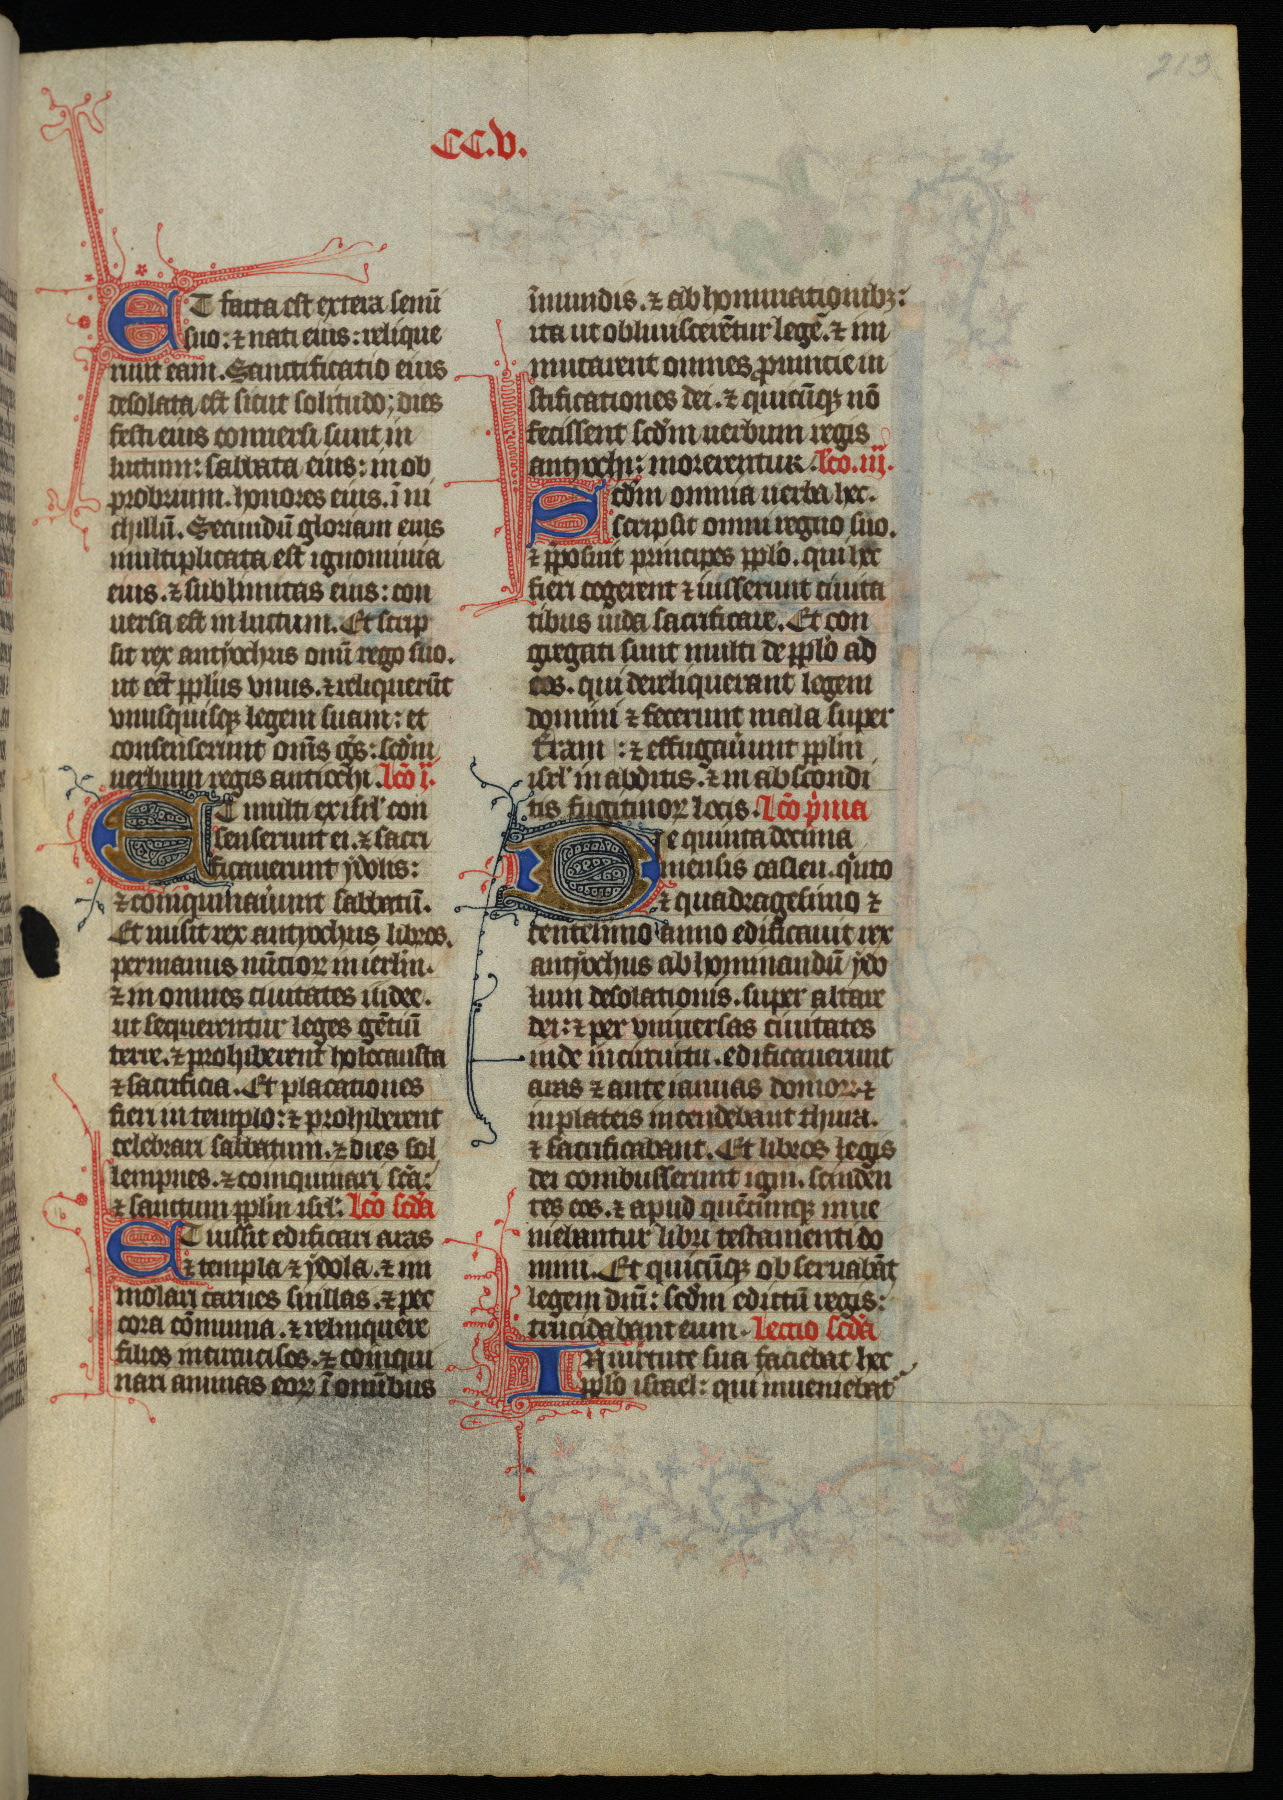 213
CC.V.
ET facta est extera semī
suo: ⁊ nati eius: relique
runt eam. Sanctificatio eius
desolata est sicut solitudo; dies
festi eius conuersi sunt in
luctum: sabbata eius: in ob
probrium. honores eius. ī ni
chillū. Secundū gloriam eius
multiplicata est ignominia
eius. ⁊ sublimitas eius: con
uersa est in luctum. Et scrip
sit rex antyochus om̄i regō suo.
ut eēt pplūs vnus. ⁊ reliquerūt
vnusquisqꝫ legem suam: et
consenserunt om̄s gēs: scd̄m
uerbum regis antiochi. lcō ij.
ET multi ex isrl̄ con
senserunt ei. ⁊ sacri
ficauerunt ydolis:
⁊ coinquinauūunt sabbatū.
Et misit rex antyochus libros.
per manus nūcioꝝ in ierl̄m.
⁊ in omnes ciuitates iudee.
ut sequerentur leges gētiū
terre. ⁊ prohiberent holocausta
⁊ sacrificia. Et placationes
fieri in templo: ⁊ prohiberent
celebrari sabbatum. ⁊ dies sol
lempnes. ⁊ coinquinari sc̄a:
⁊ sanctum pplm̄ isrl̄: lcō scd̄a
ET iussit edificari aras
⁊ templa ⁊ ydola. ⁊ im
molari carnes suillas. ⁊ pec
cora cōmunia. ⁊ relinquere
filios incircucisos. ⁊ coinqui
nari animas eoꝝ ī omībus
īmundis. ⁊ abhominationibꝫ:
ita ut obliuiscerētur legē. ⁊ im
mutarent omnes ꝓuincie iu
stificationes dei. ⁊ quicūqꝫ nō
fecissent scd̄m uerbum regis
antyochi: morerentur. lco. iij.
Scd̄m omnia uerba hec.
scripsit omni regno suo.
⁊ p̄posuit principes pplō. qui hec
fieri cogerent ⁊ iusserunt ciuita
tibus iuda sacrificare. Et con
gregati sunt multi de pplō ad
eos. qui dereliquerant legem
domini ⁊ fecerunt mala super
t̄ram: ⁊ effugauīunt pplm̄
isrl̄ in abditis. ⁊ in abscondi
tis fugitiuoꝝ locis. Lcō p̄ma
De quinta decima
mensis casleu. q̄nto
⁊ quadragesimo ⁊
centesimo anno edificauit rex
antyochus abhominandū ydo
lum desolationis. super altare
dei: ⁊ per vniuersas ciuitates
iude in circuitu. edificauerunt
aras ⁊ ante ianuas domoꝝ. ⁊
in plateis incendebant thura.
⁊ sacrificabant. Et libros legis
dei combusserunt igni. scinden
tes eos. ⁊ apud quēcūmqꝫ inue
niebantur libri testamenti do
mini. Et quicūqꝫ obseruabāt
legem dn̄i: scd̄m edictū regis:
trucidabant eum. Lectio scd̄a
IN uirtute sua faciebat hec
pplō israel: qui inueniebāt